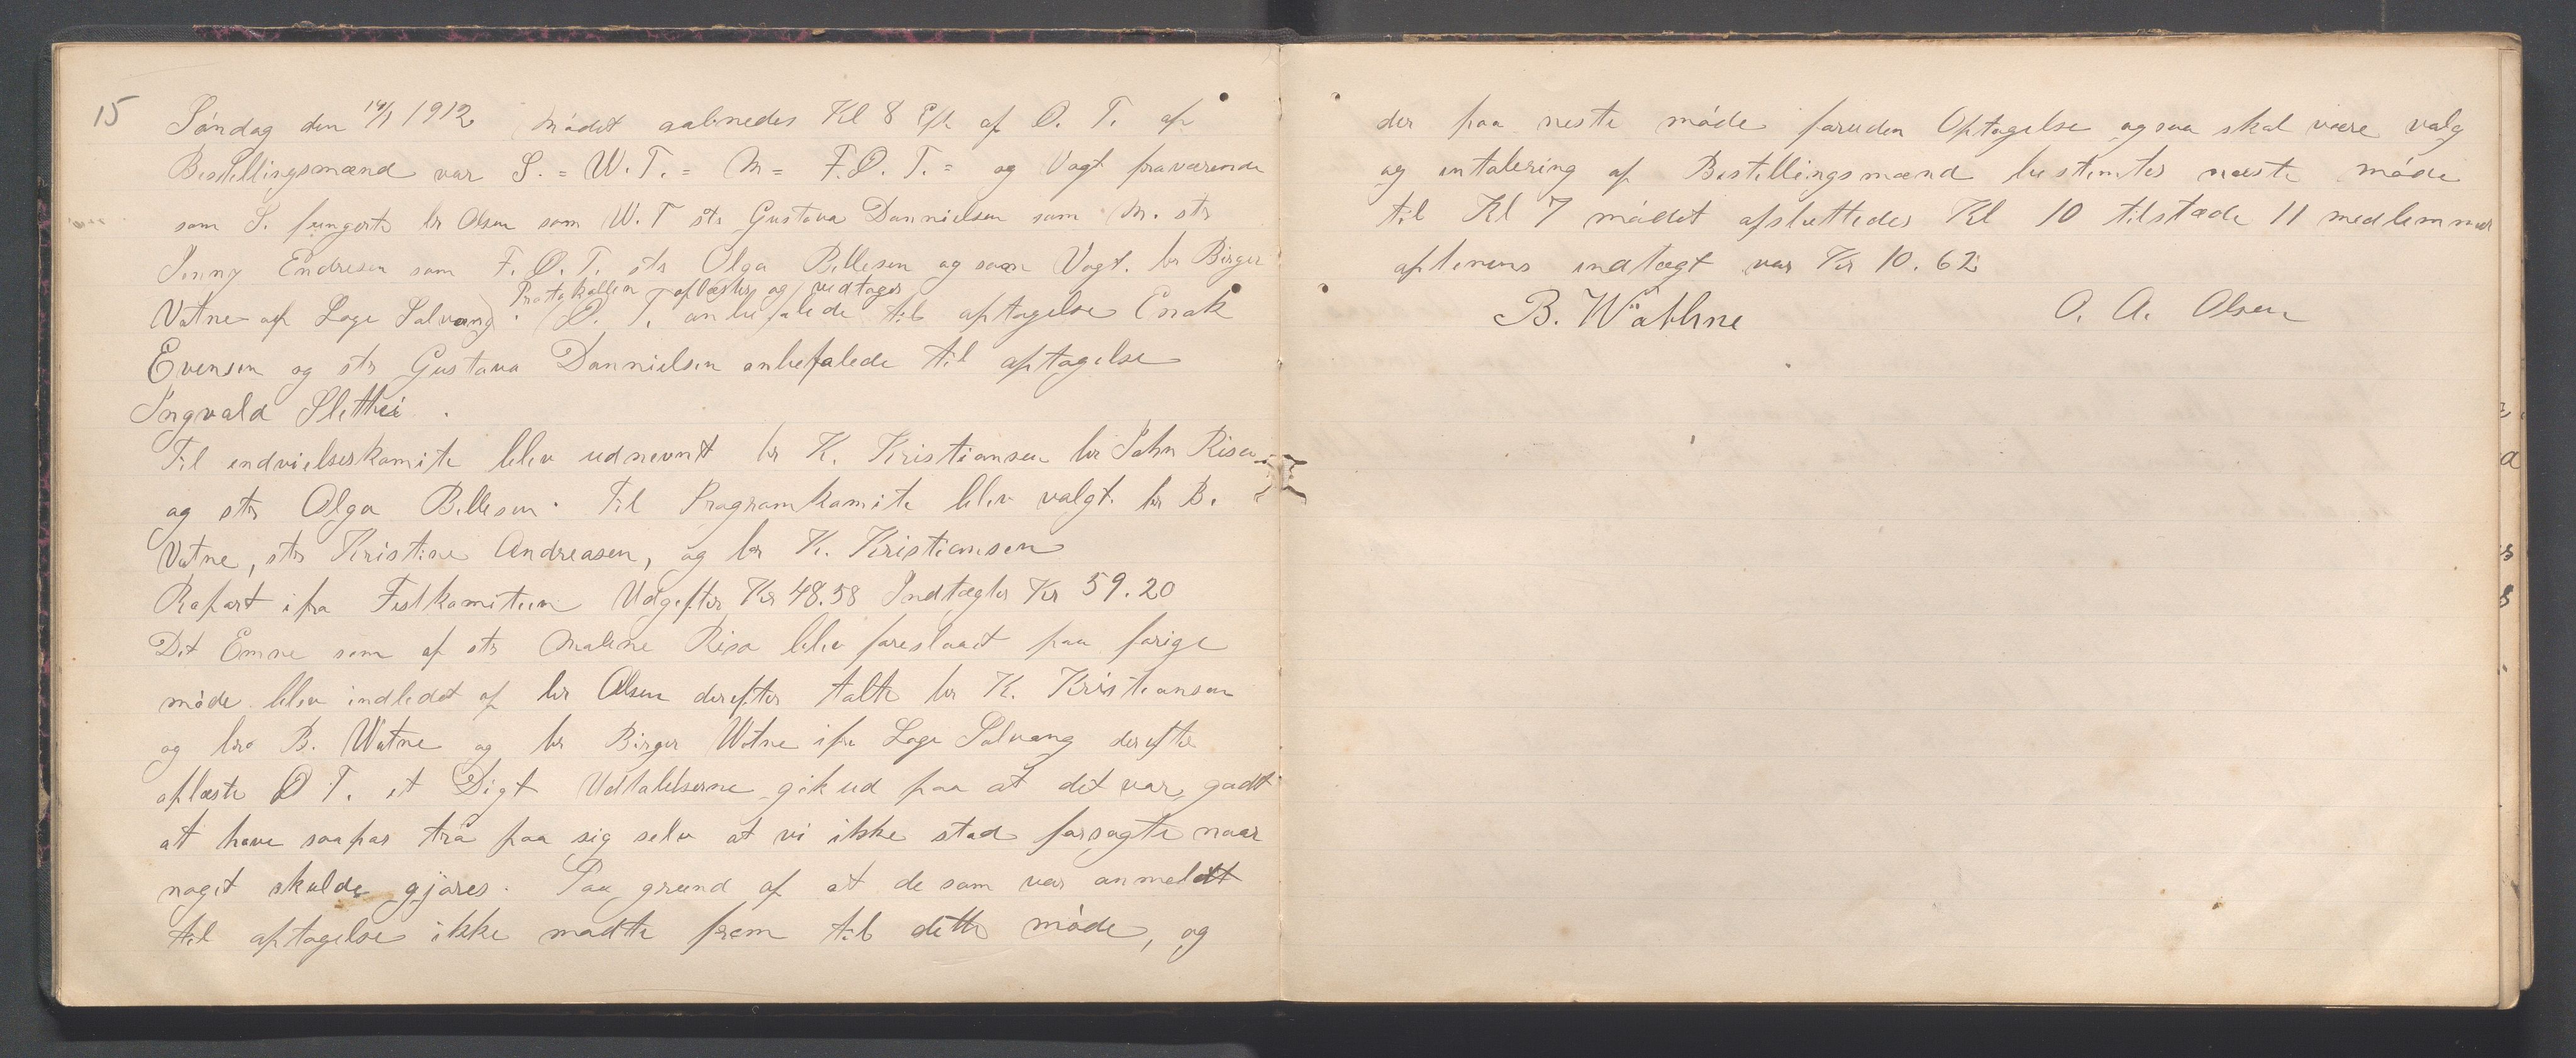 15 Søndag den 14/1 1912 Mødet aabnedes Kl 8 Eft af O. T. af
Bestillingsmænd var S. = W. T. = M = F. O. T. = og Vagt fraværende
som S. fungerte br Olsen som W. T str Gustava Dannielsen som M. str
Jenny Endresen som F. O. T. str Olga Bellesen og som Vagt. br Birger
Protokollen oplæstes og vedtoges
Vatne af Loge Solvang. O. T. anbefalede til optagelse Enok
Evensen og str Gustava Dannielsen anbefalede til optagelse
Ingvald Slettei.
Til indvielseskomite blev udnevnt br K. Kristiansen br John Risa
og str Olga Bellesen. Til Programkomite blev valgt br B.
Vatne, str Kristine Andreasen, og br K. Kristiansen
Raport ifra Festkomiteen Udgifter Kr 48.58 Indtægter Kr 59.20
Det Emne som af str Malene Risa blev foreslaaet paa forige
møde blev indledet af br Olsen derefter talte br K. Kristiansen
og bro B. Watne og br Birger Watne ifra Loge Solvang derefter
oplæste O T. et Digt Udtalelserne gik ud paa at det var godt
at have saapas tro paa sig selv at vi ikke stod forsagte naar
noget skulde gjøres. Paa grund af at de som var anmeldt
til optagelse ikke mødte frem til dette møde, og
der paa neste møde foruden Optagelse ogsaa skal være valg
og intalering af Bestillingsmænd bestemtes næste møde
til Kl 7 mødet afsluttedes Kl 10 tilstæde 11 medlemmer
aftenens indtægt var Kr 10.62
B. Wathne O. A. Olsen